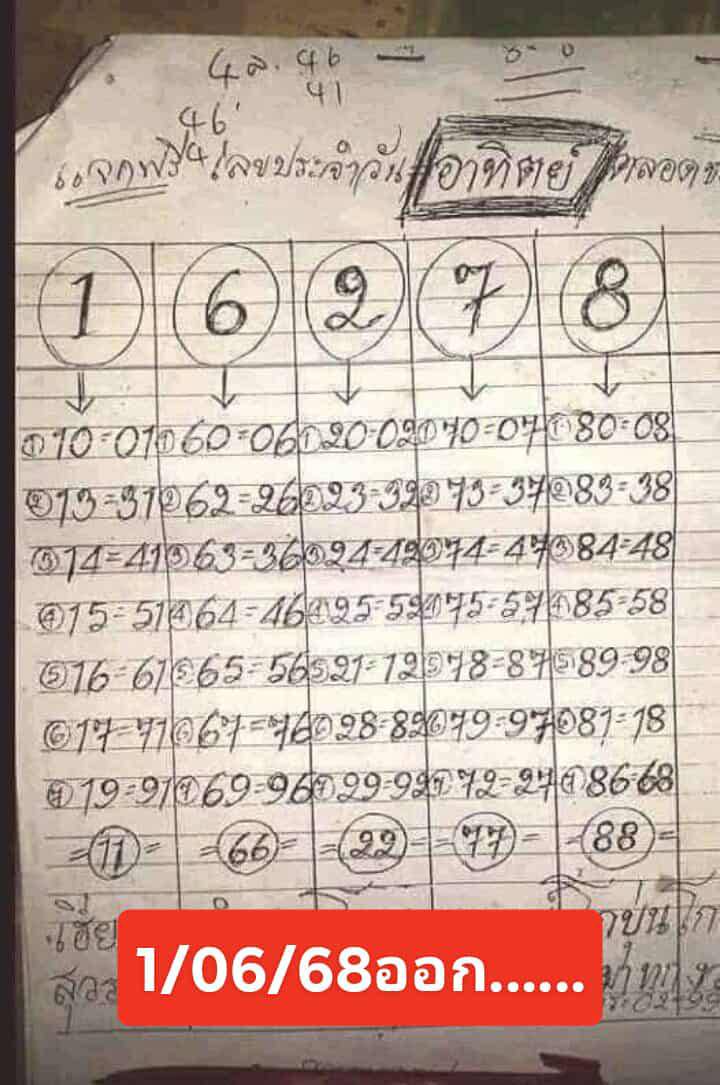 4 ล. 46
41
46
4
แจกฟรี เลขประจำวัน อาทิตย์ ตลอด
1 6 2 7 8
① 10=01 ① 60=06 ① 20=02 ① 70=07 ① 80=08
② 13=31 ② 62=26 ② 23=32 ② 73=37 ② 83=38
③ 14=41 ③ 63=36 ③ 24=42 ③ 74=47 ③ 84=48
④ 15=51 ④ 64=46 ④ 25=52 ④ 75=57 ④ 85=58
⑤ 16=61 ⑤ 65=56 ⑤ 21=12 ⑤ 78=87 ⑤ 89=98
⑥ 17=71 ⑥ 67=76 ⑥ 28=82 ⑥ 79=97 ⑥ 81=18
⑦ 19=91 ⑦ 69=96 ⑦ 29=92 ⑦ 72=27 ⑦ 86=68
=11= =66= =22= =77= =88=
1/06/68ออก......